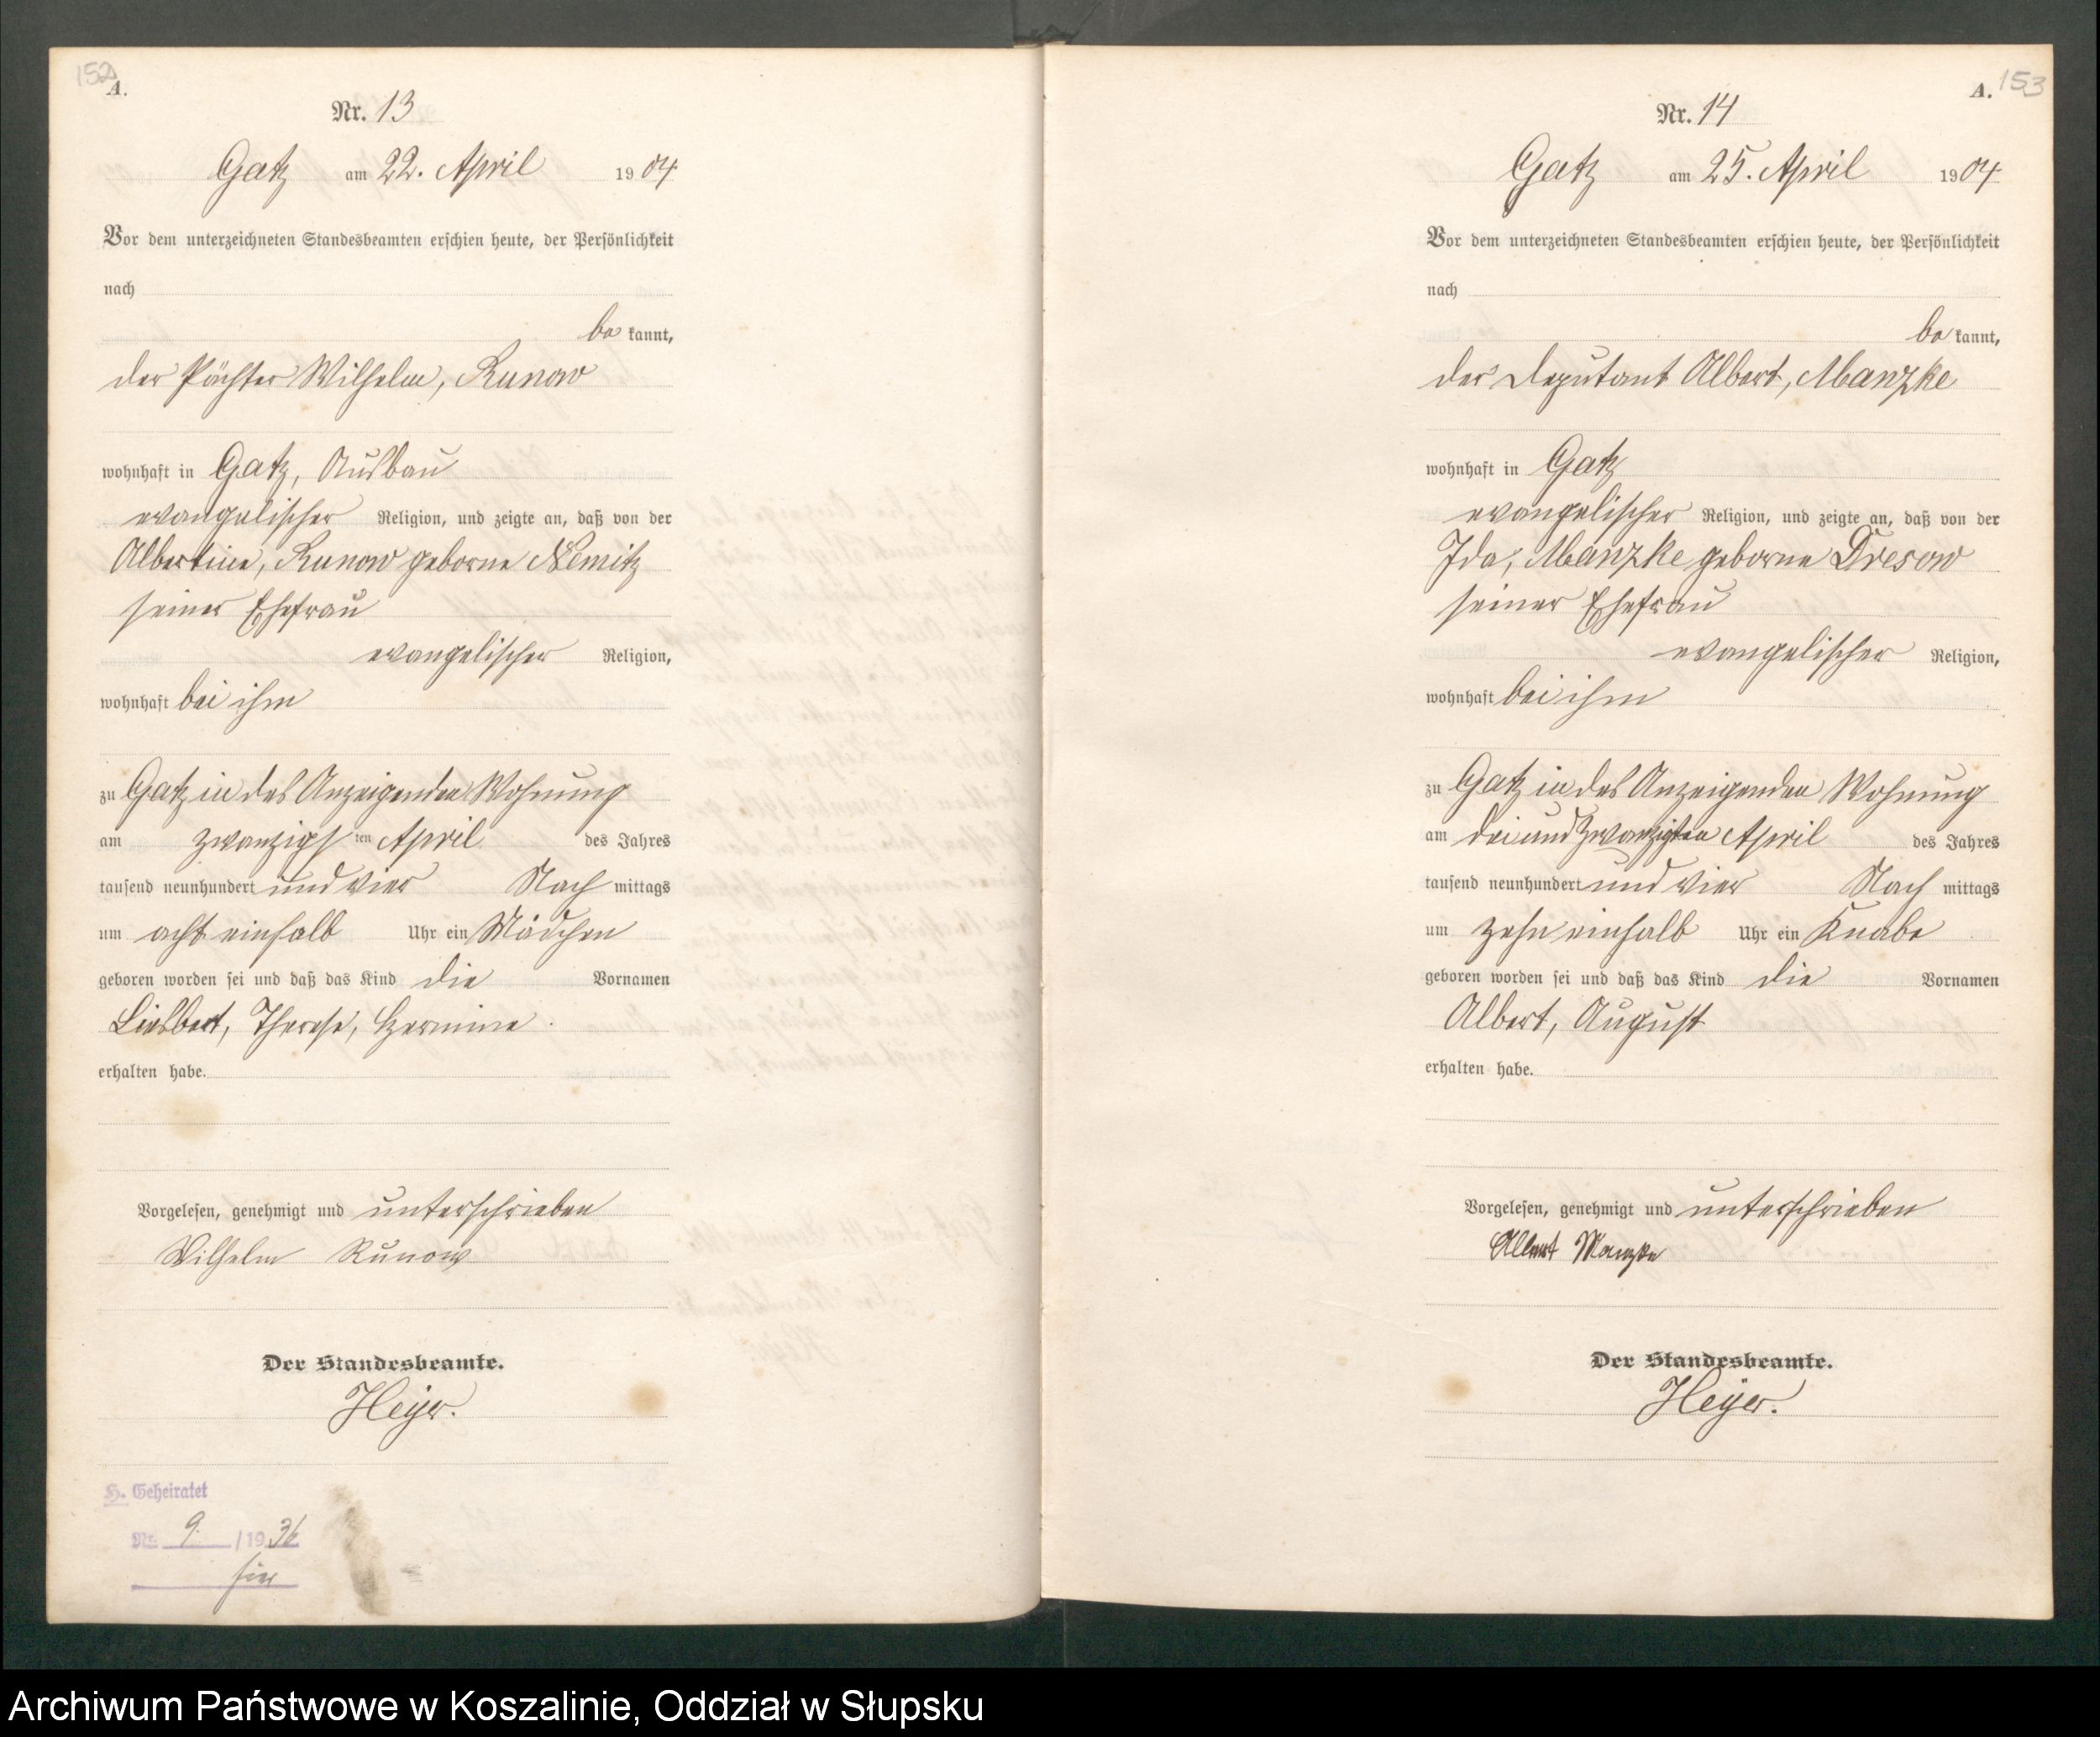 152
A.
Nr. 13
Gatz am 22. April 1904
Vor dem unterzeichneten Standesbeamten erschien heute, der Persönlichkeit
nach
be kannt,
der Pächter Wilhelm, Runow
wohnhaft in Gatz, Ausbau
evangelischer Religion, und zeigte an, daß von der
Albertine, Runow geborne Nemitz
seiner Ehefrau
evangelischer Religion,
wohnhaft bei ihm
zu Gatz in des Anzeigenden Wohnung
am zwanzigsten April des Jahres
tausend neunhundert und vier Nach mittags
um acht einhalb Uhr ein Mädchen
geboren worden sei und daß das Kind die Vornamen
Liesbeet, Therese, Hermine.
erhalten habe.
Vorgelesen, genehmigt und unterschrieben
Wilhelm Runow
Der Standesbeamte.
Heyer.
H. Geheiratet
Nr. 9. /1936
hier
153
A.
Nr. 14
Gatz am 25. April 1904
Vor dem unterzeichneten Standesbeamten erschien heute, der Persönlichkeit
nach
be kannt,
der Deputant Albert, Manzke
wohnhaft in Gatz
evangelischer Religion, und zeigte an, daß von der
Ida, Manzke geborne Dresow
seiner Ehefrau
evangelischer Religion,
wohnhaft bei ihm
zu Gatz in des Anzeigenden Wohnung
am dreiundzwanzigsten April des Jahres
tausend neunhundert und vier Nach mittags
um zehn einhalb Uhr ein Knabe
geboren worden sei und daß das Kind die Vornamen
Albert, August
erhalten habe.
Vorgelesen, genehmigt und unterschrieben
Albert Manzke
Der Standesbeamte.
Heyer.
Archiwum Państwowe w Koszalinie, Oddział w Słupsku